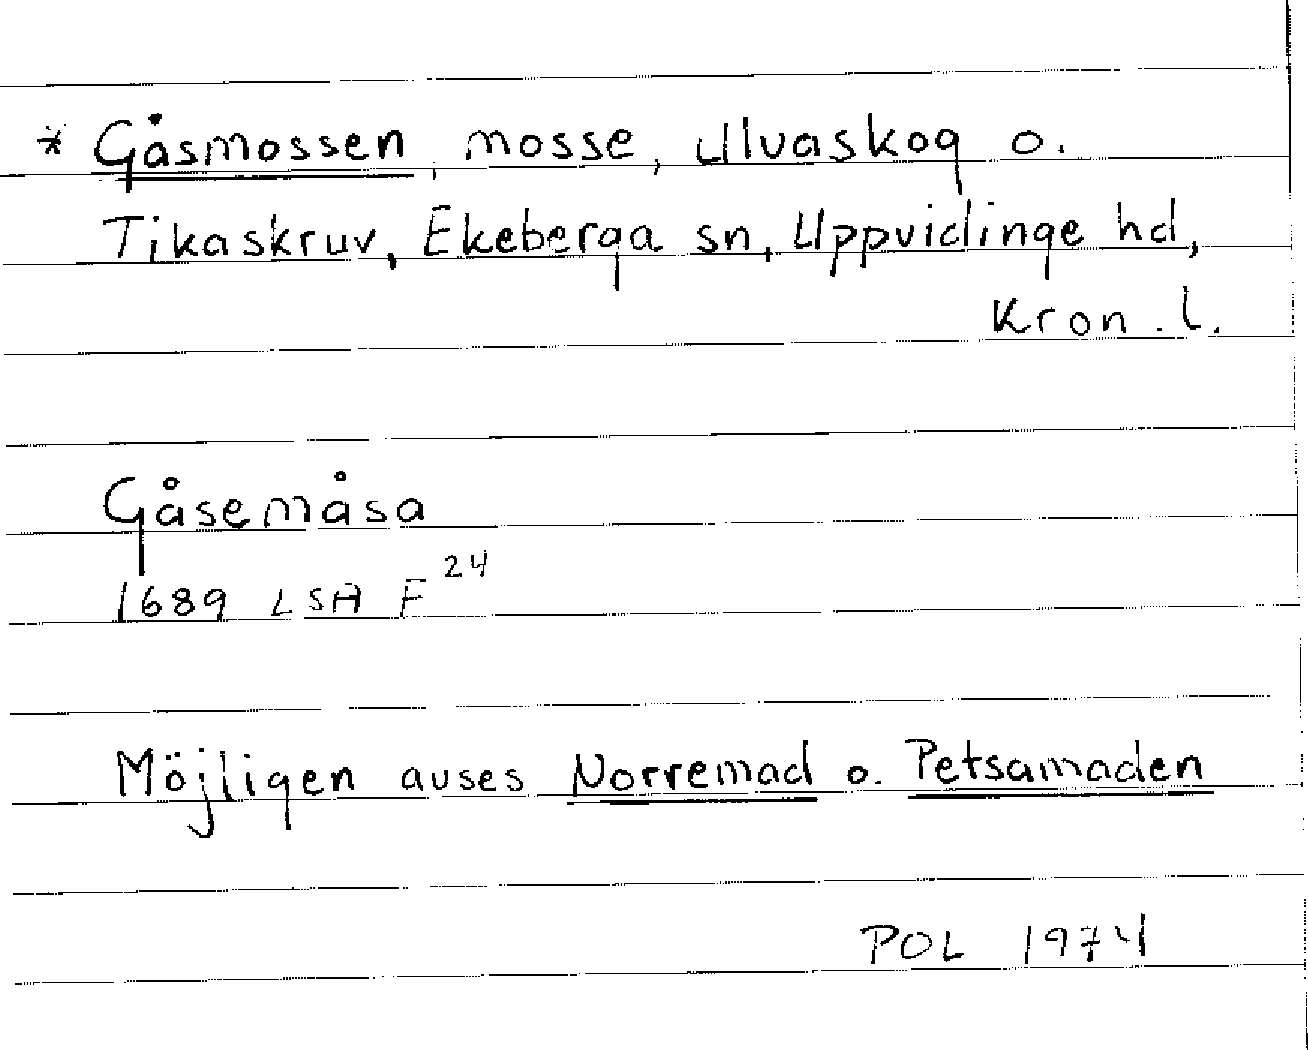 * Gåsmossen, mosse, Ulvaskog o.
Tikaskruv, Ekeberga sn, Uppvidinge hd,
Kron. l.
Gåsemåsa
1689 LSA F 24
Möjligen avses Norremad o. Petsamaden
POL 1974